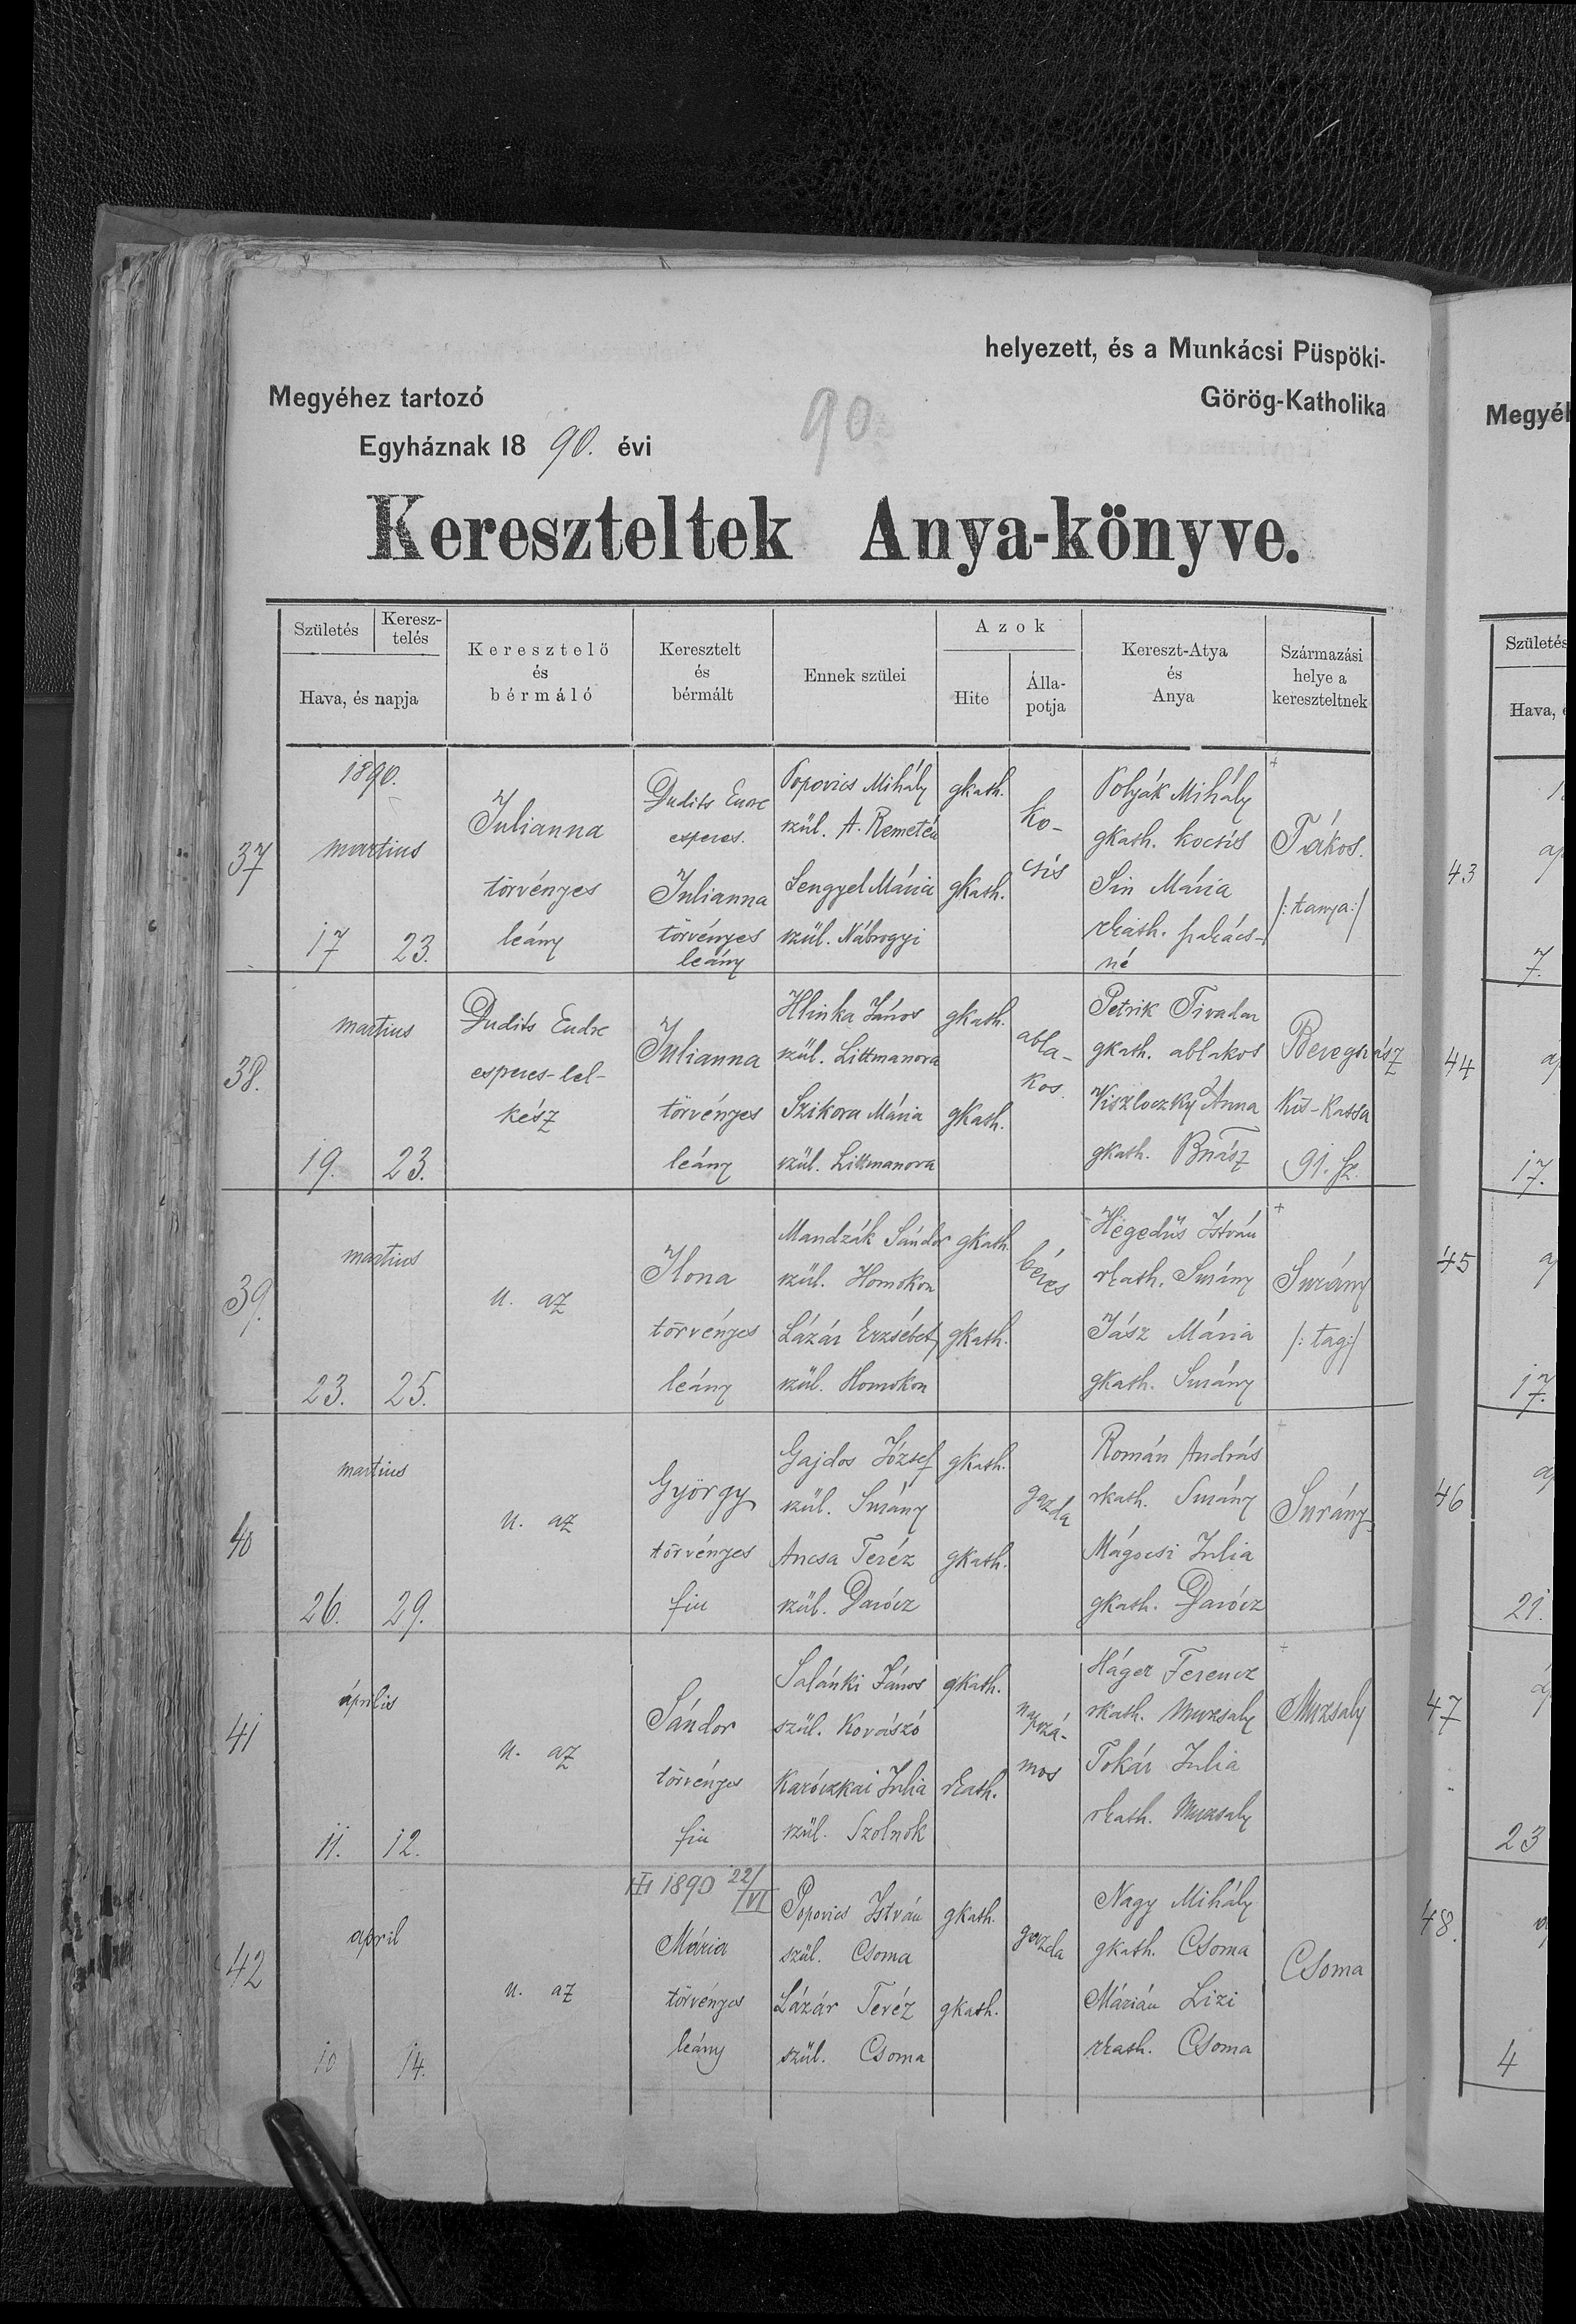 helyezett, és a Munkácsi Püspöki-
Megyéhez tartozó Görög-Katholika
Egyháznak 1890. évi
90
Kereszteltek Anya-könyve.
Születés Keresz-telés Hava, és napja
Keresztelő és bérmáló
Keresztelt és bérmált
Ennek szülei
Azok Hite Álla-potja
Kereszt-Atya és Anya
Származási helye a kereszteltnek
37
1890.
martius
17 23.
Julianna
törvényes
leány
Dudits Endre
esperes.
Julianna
törvényes
leány
Popovics Mihály gkath.
szül. A. Remetén
Lengyel Mária gkath.
szül.
ko-
csis
Polyák Mihály
gkath. kocsis
Sin Mária
rkath. szakács-
né
Tákos.
/:tanya:/
38.
martius
19. 23.
Dudits Endre
esperes-lel-
kész
Julianna
törvényes
leány
Hlinka János gkath.
szül. Littmanova
Szikora Mária gkath.
szül. Littmanova
abla-
kos
Petrik Tivadar
gkath. ablakos
Viszloczky Anna
gkath. Bszász
Beregszász
Kis-Kassa
91. sz.
39.
martius
23. 25.
u. az
Ilona
törvényes
leány
Mandzák Sándor gkath.
szül. Homokon
Lázár Erzsébet gkath.
szül. Homokon
béres
Hegedűs István
rkath. Surány
Jász Mária
gkath. Surány
Surány
/:tag:/
40
martius
26. 29.
u. az
György
törvényes
fiu
Gajdos József gkath.
szül. Surány
Ancsa Teréz gkath.
szül. Darócz
gazda
Román András
rkath. Surány
Mágocsi Julia
gkath. Darócz
Surány
41
április
11. 12.
u. az
Sándor
törvényes
fiu
Salánki János gkath.
szül. Kovászó
Karóczkai Julia rkath.
szül. Szolnok
napszá-
mos
Háger Ferencz
rkath. Muzsaly
Tokár Julia
rkath. Muzsaly
Muzsaly
42
april
10 14.
u. az
1890 22/VI
Mária
törvényes
leány
Popovics István gkath.
szül. Csoma
Lázár Teréz gkath.
szül. Csoma
gazda
Nagy Mihály
gkath. Csoma
Márián Lizi
rkath. Csoma
Csoma
Megyéh
Születés
Hava, é
43
7.
44
17.
45
17.
46
21.
47
23
48.
4